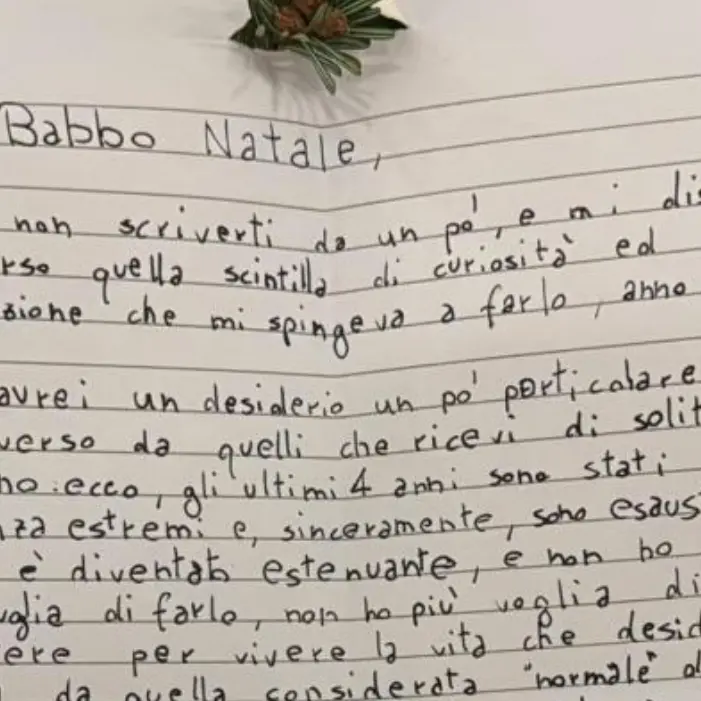 Babbo Natale,
non scriverti da un po', e mi dis
rso quella scintilla di curiosità ed
zione che mi spingeva a farlo, anno
avrei un desiderio un po' particolare
verso da quelli che ricevi di solit
no: ecco, gli ultimi 4 anni sono stati
nza estremi e, sinceramente, sono esaus
è diventato estenuante, e non ho
oglia di farlo, non ho più voglia di
ere per vivere la vita che desid
da quella considerata "normale" d